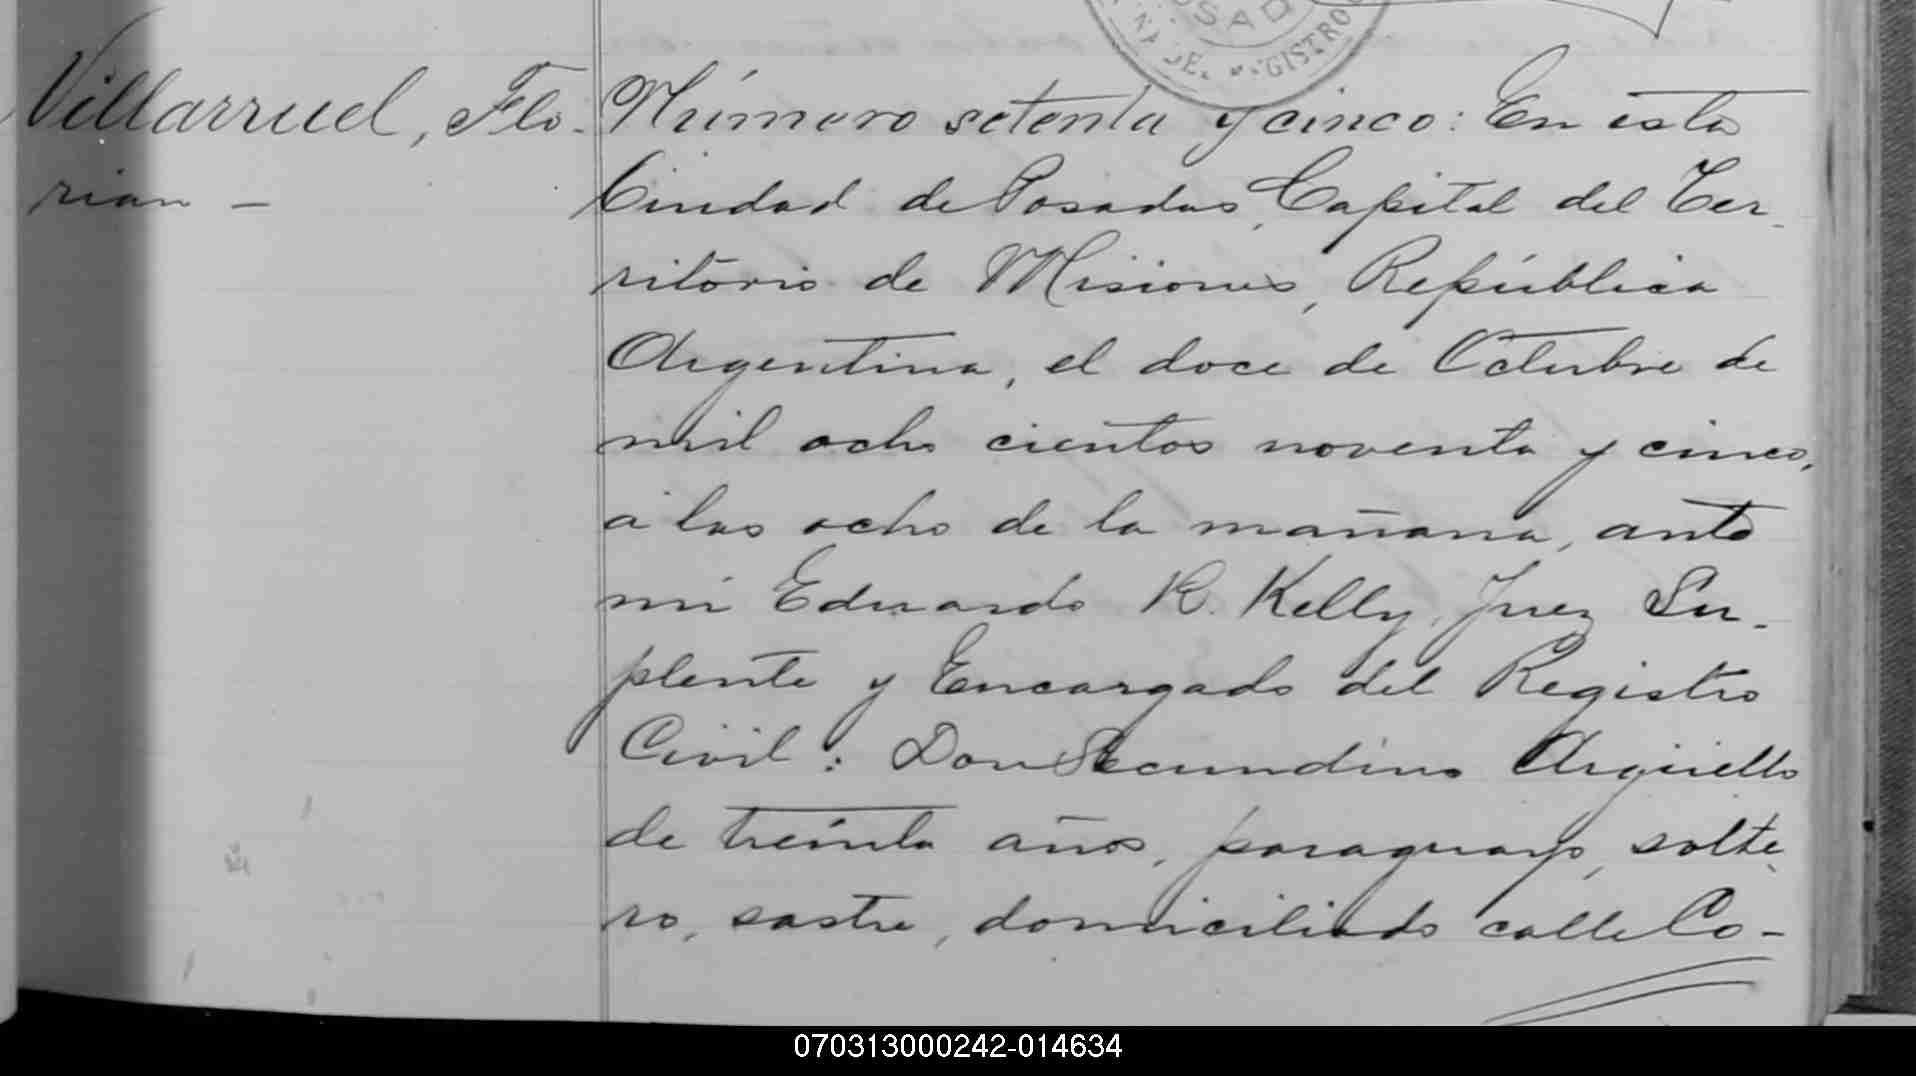 Villarruel, Flo-
rian —
POSAD
DEL REGISTRO
Número setenta y cinco: En esta
Ciudad de Posadas, Capital del Ter-
ritorio de Misiones, República
Argentina, el doce de Octubre de
mil ocho cientos noventa y cinco,
a las ocho de la mañana, ante
mi Eduardo R. Kelly, Juez Su-
plente y Encargado del Registro
Civil: Don Secundino Argüello
de treinta años, paraguayo, solte-
ro, sastre, domiciliado calle Co-
070313000242-014634